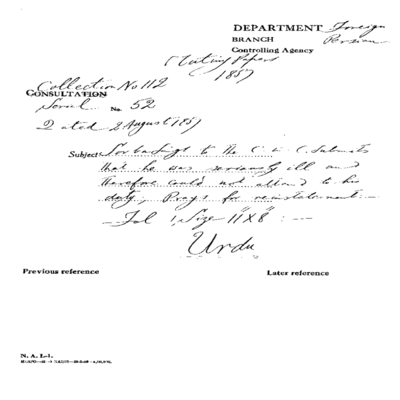 DEPARTMENT Foreign
BRANCH Persian
Controlling Agency
Mutiny Papers
1857
Collection No 112
CONSULTATION
Serial No 52
Dated 2 August 1857
Subject to the C in C. Submits
that he was seriously ill and
therefore could not attend to his
duty, Prays for reinstatement:—
— Fol 1, Size 11"X8": —
Urdu
Previous reference Later reference
N. A. I.-1.